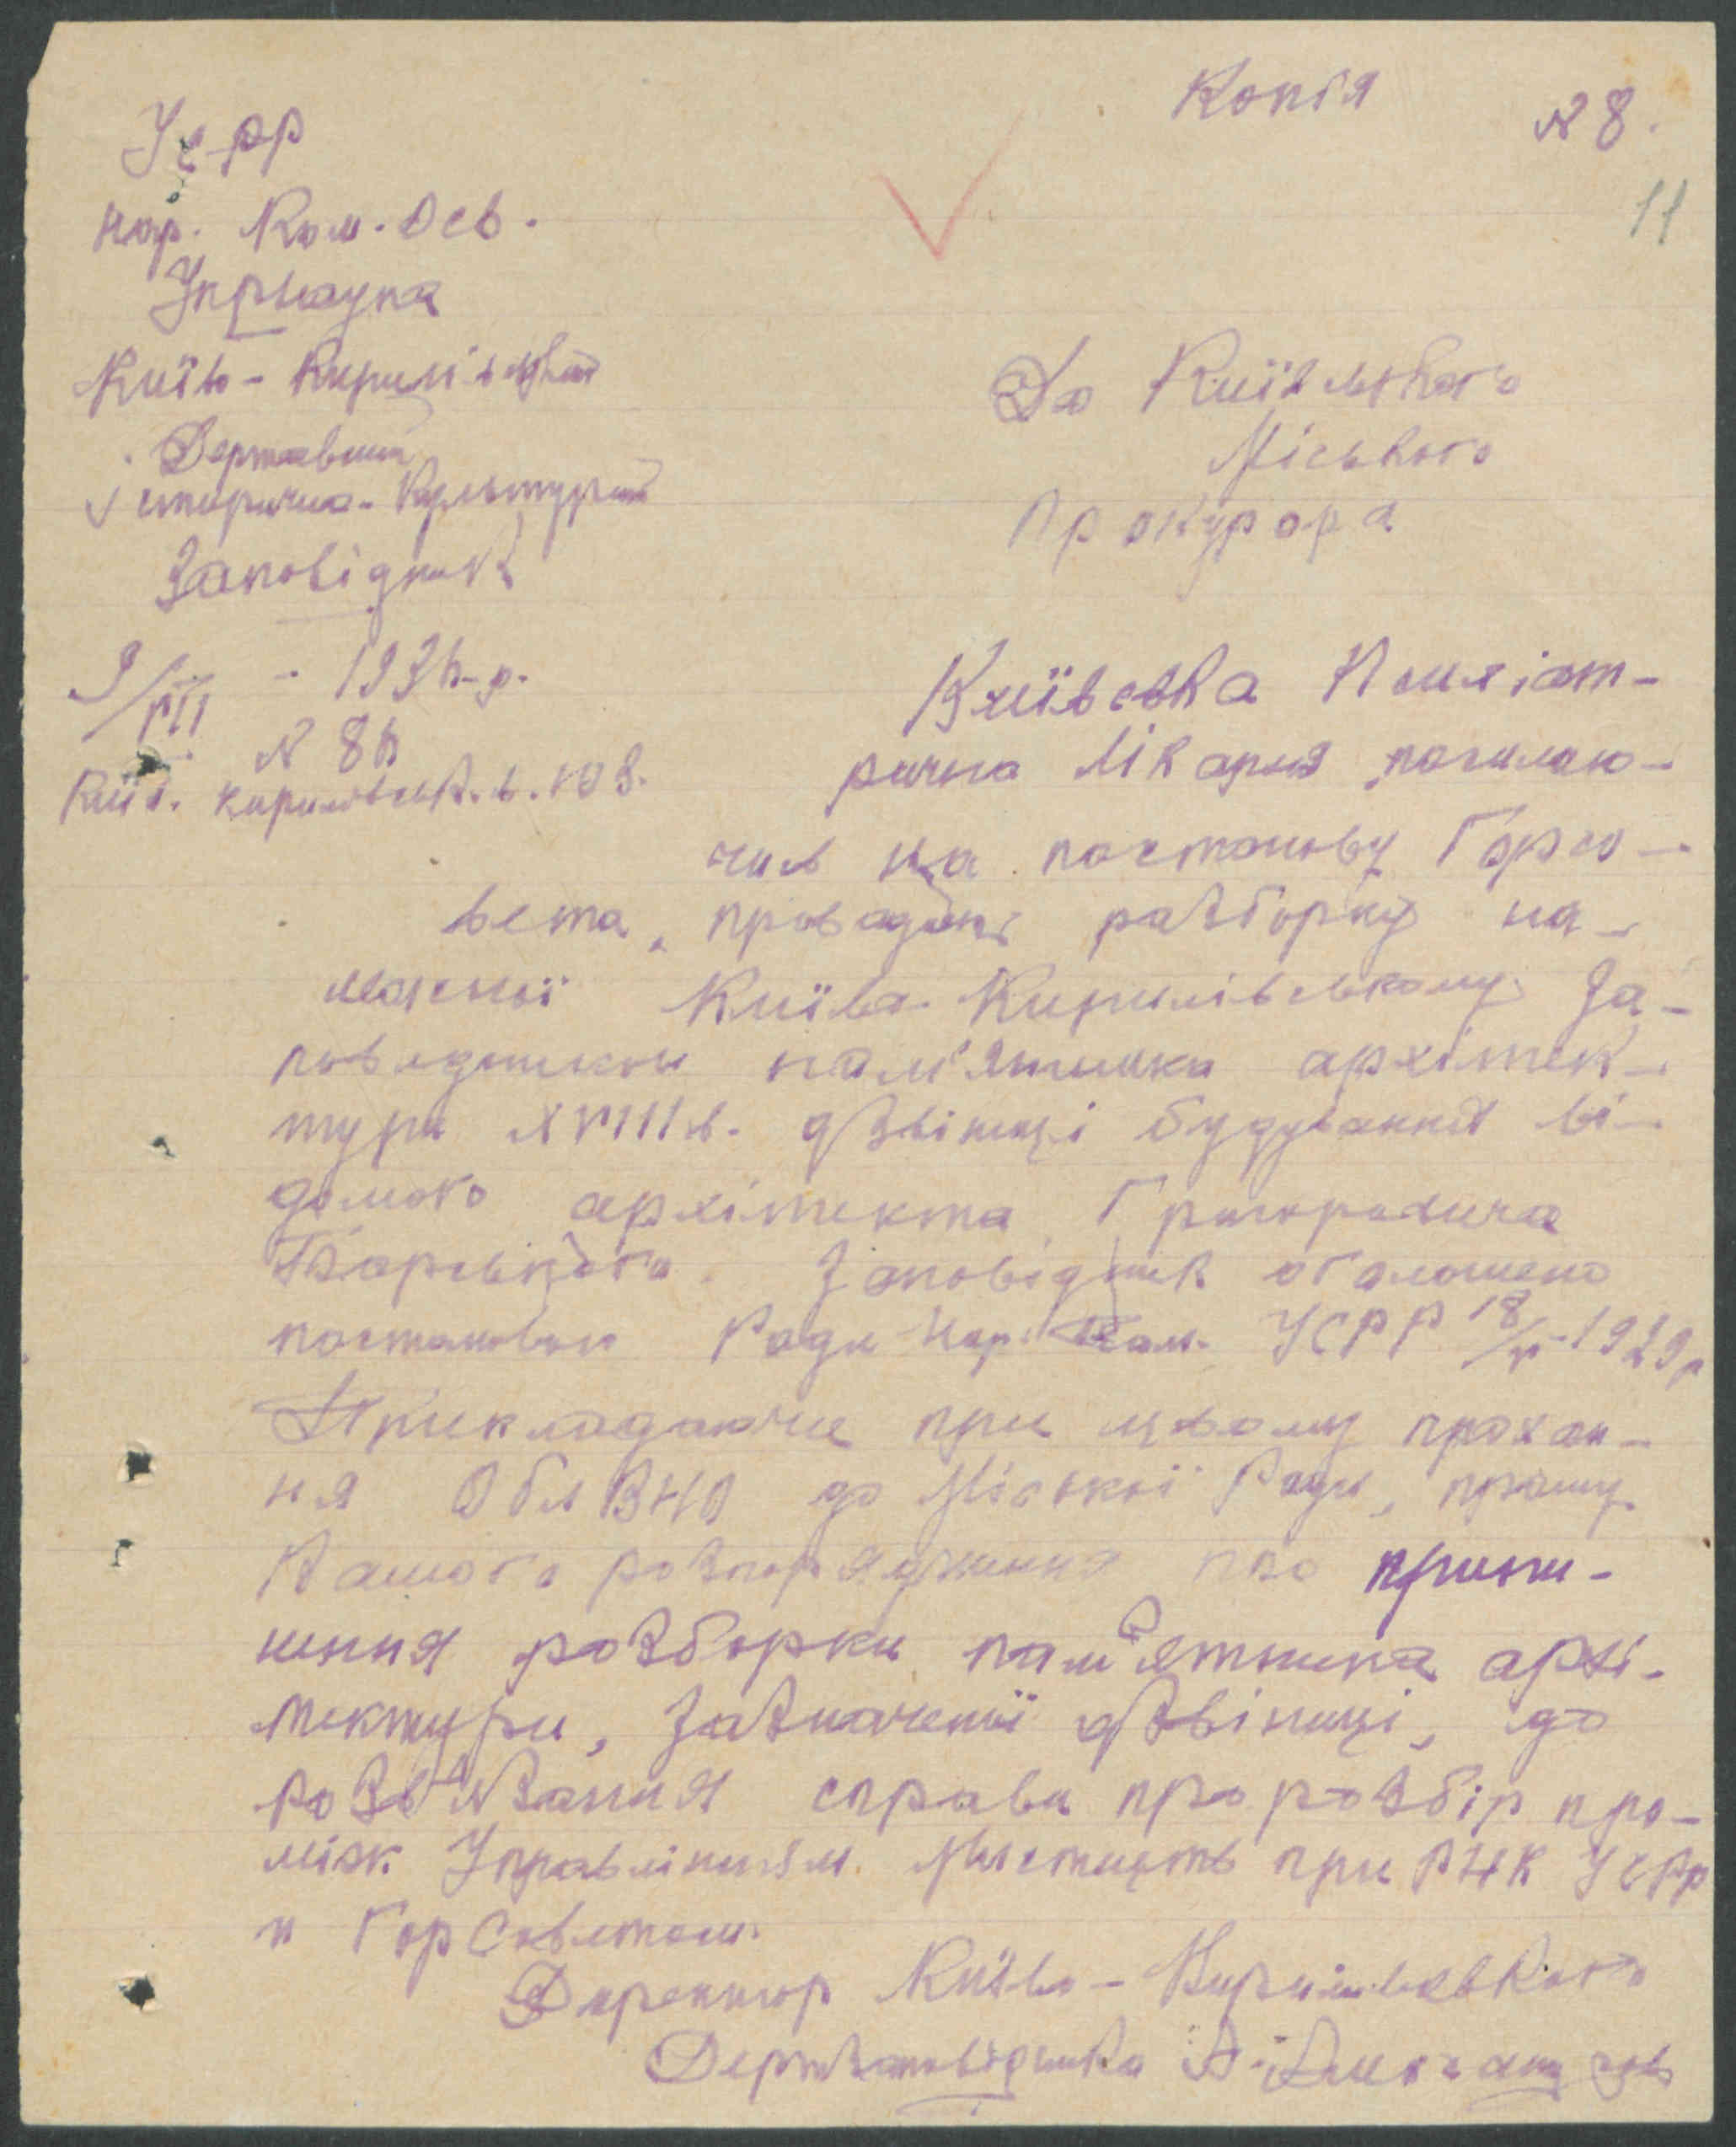 Копія
№ 8.
11
УСРР
Нар. Ком. Осв.
Укрнаука
Київо-Кирилівський
Державний
Історично-Культурний
Заповідник
9/VII - 193 р.
№ 8
Київ. Кирилівськ. в. №
До Київського
Міського
Прокурора
Київська Псих'іат-
рична Лікарня посилаю-
чись на постанову Горсо-
вета, провадить разборку на-
лежної Київо-Кирилівському За-
поведникои пам'ятника архітек-
тури XVIII в. дзвіниці будування ві-
домого архітекта Григоровича
Барського. Заповідник оголошено
постановою Ради Нар. Ком. УСРР 18/V-1929р
Прикладаючи при цьому прохан-
ня ОблВНО до Міської Ради, прошу
Вашого розпорядження про припи-
нення розборки пам'ятника архі-
тектури, зазначеної дзвіниці, до
розв'язання справи про розбір про-
між Управлінням Мистецтв при РНК УСРР
и ГорСоветом.
Директор Київо-Кирилівського
Держзаповідника